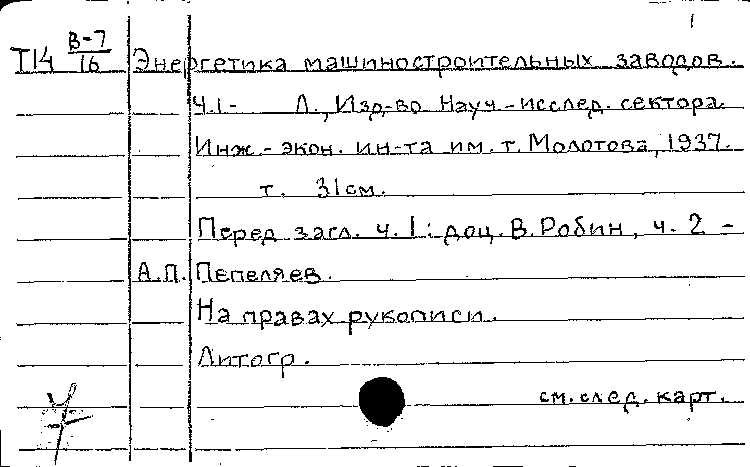 1
Т14 В-7/16 Энергетика машиностроительных заводов.
Ч.1- Л., Изд-во Науч.-исслед. сектора
Инж.-экон. ин-та им. т. Молотова, 1937.
т. 31см.
Перед загл. ч. 1: доц. В. Робин, ч. 2 -
А.П. Пепеляев.
На правах рукописи.
Литогр.
см. след. карт.